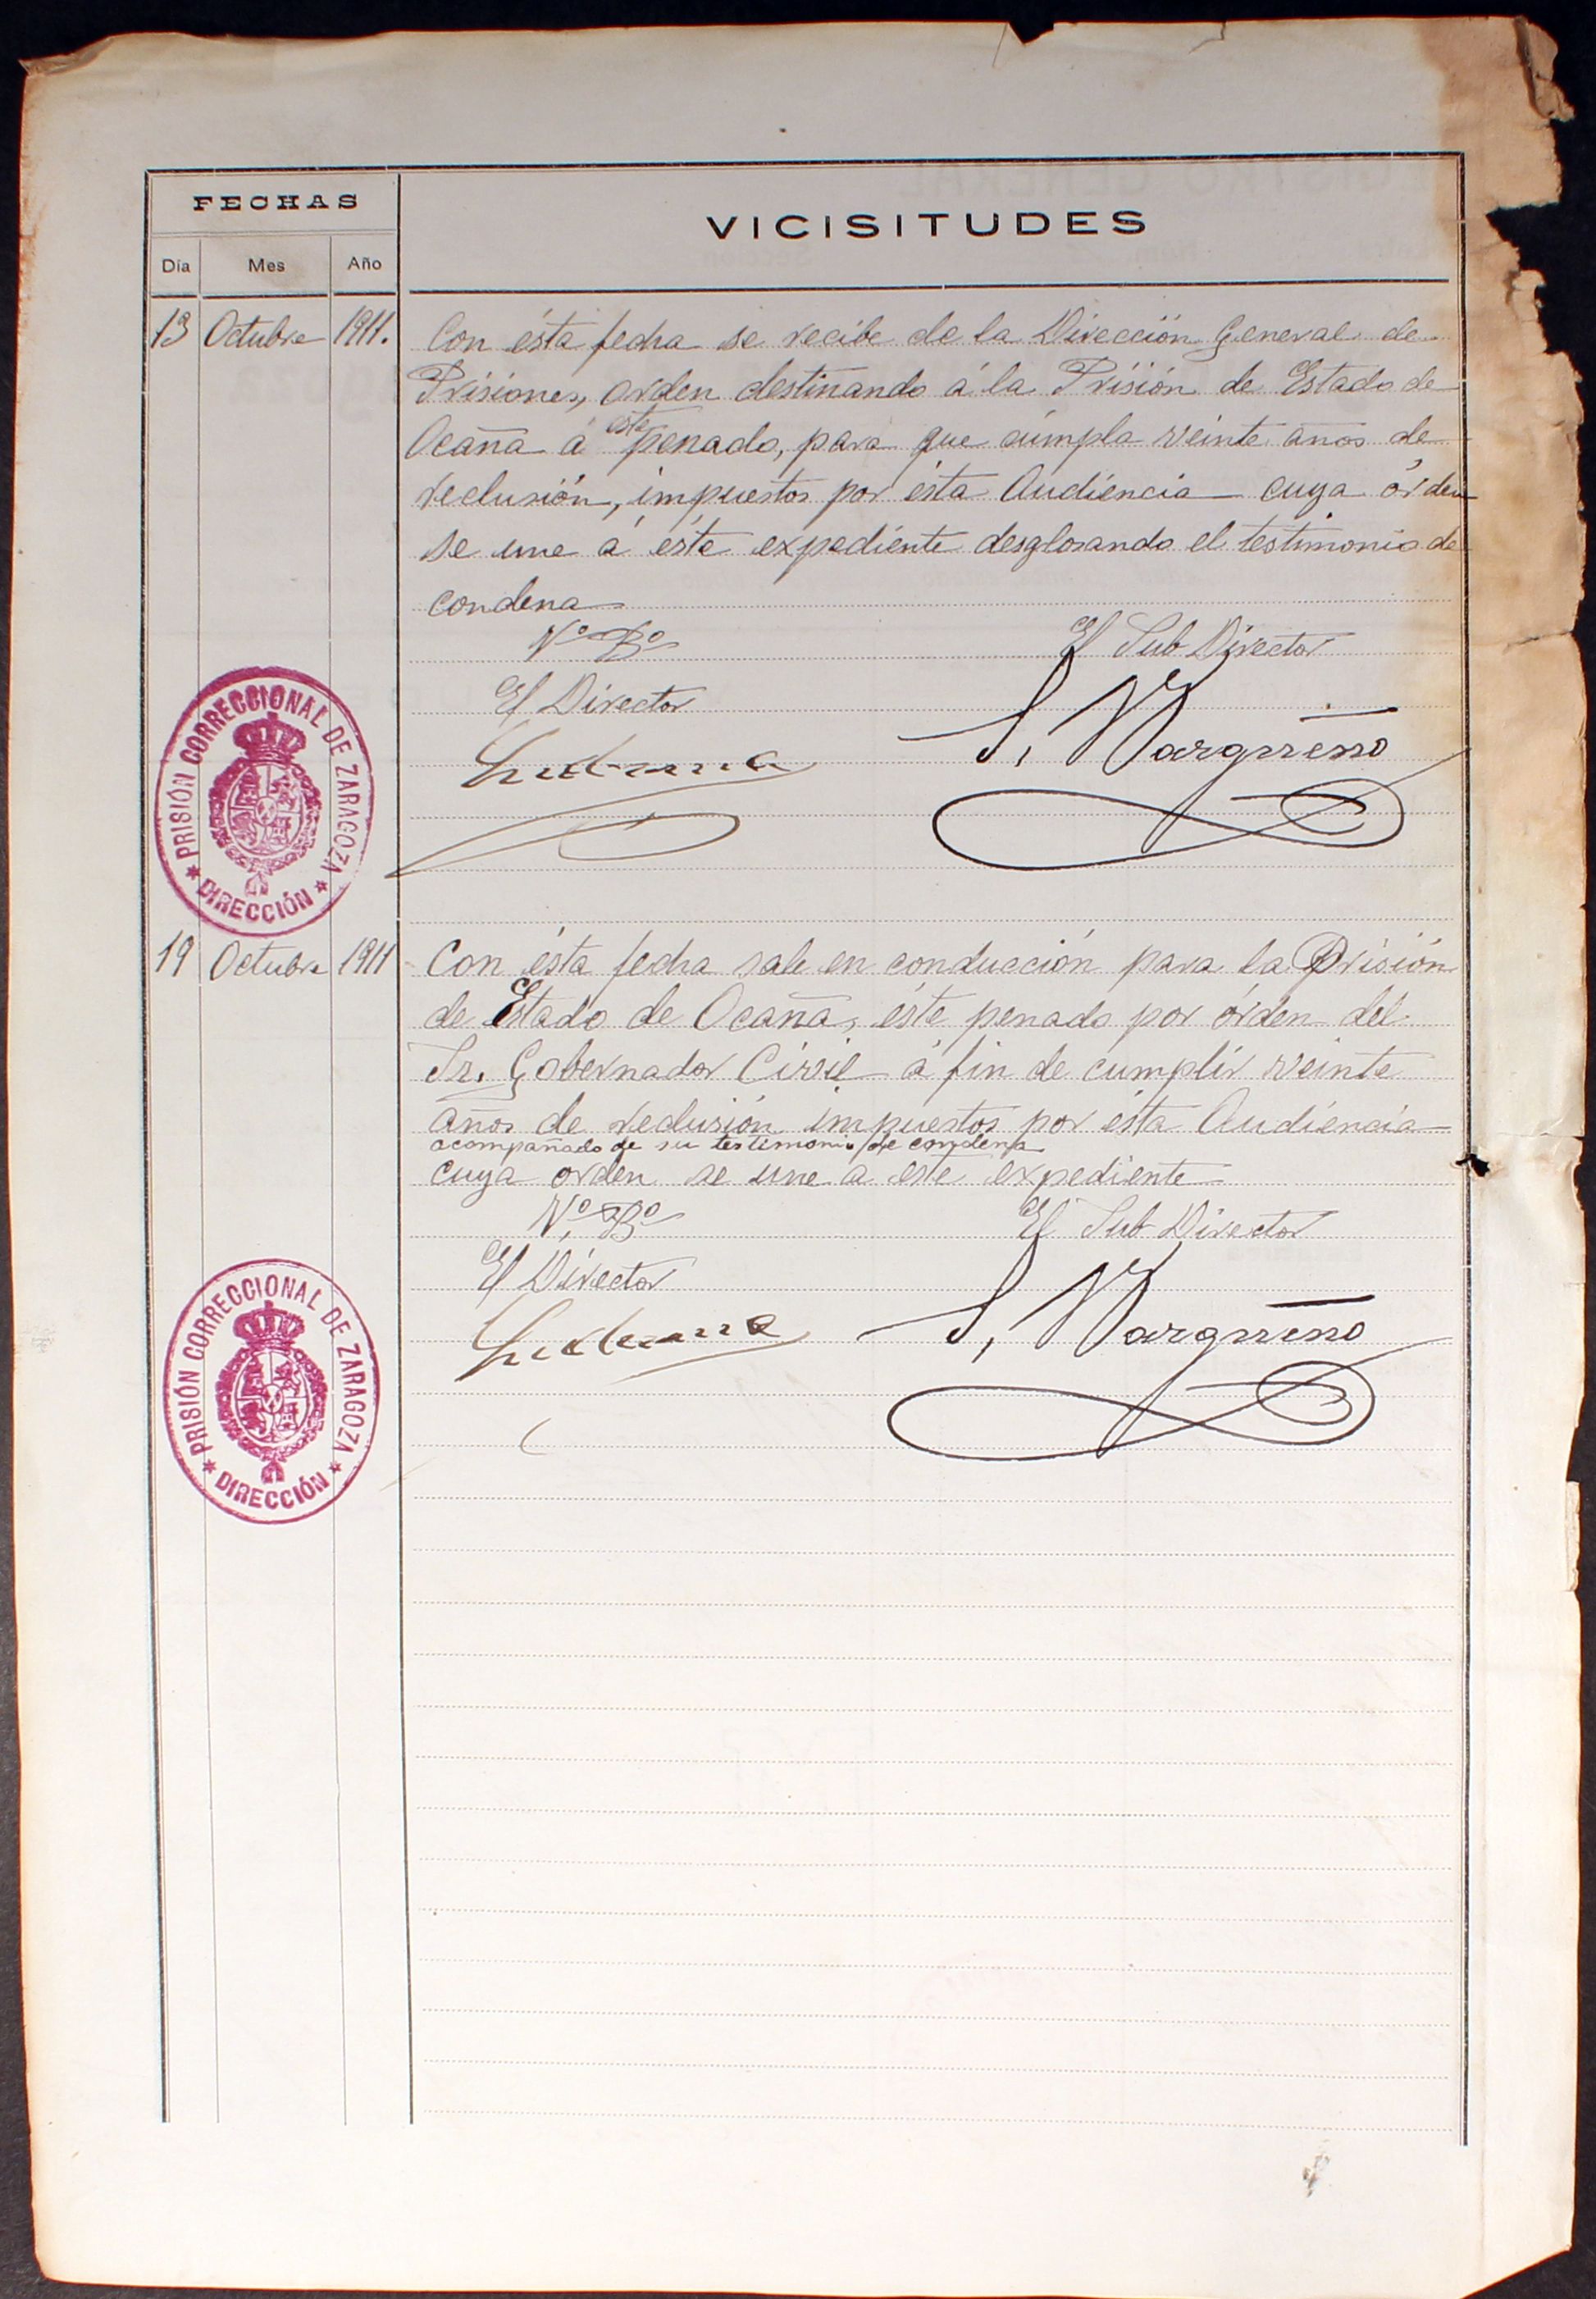 FECHAS
VICISITUDES
Día Mes Año
13 Octubre 1911. Con ésta fecha se recibe de la Dirección General de
Prisiones, orden destinando á la Prisión de Estado de
Ocaña á este penado, para que cumpla veinte años de
reclusión, impuestos por ésta Audiencia cuya órden
se une á éste expediente desglosando el testimonio de
condena
Vº Bº El Sub Director
El Director
PRISIÓN CORRECCIONAL DE ZARAGOZA
* DIRECCIÓN *
19 Octubre 1911 Con ésta fecha sale en conducción para la Prisión
de Estado de Ocaña, éste penado por órden del
Sr. Gobernador Civil á fin de cumplir veinte
años de reclusión impuestos por ésta Audiencia
acompañado de su testimonio de condena
cuya orden se une a este expediente
Vº Bº El Sub Director
El Director
PRISIÓN CORRECCIONAL DE ZARAGOZA
* DIRECCIÓN *